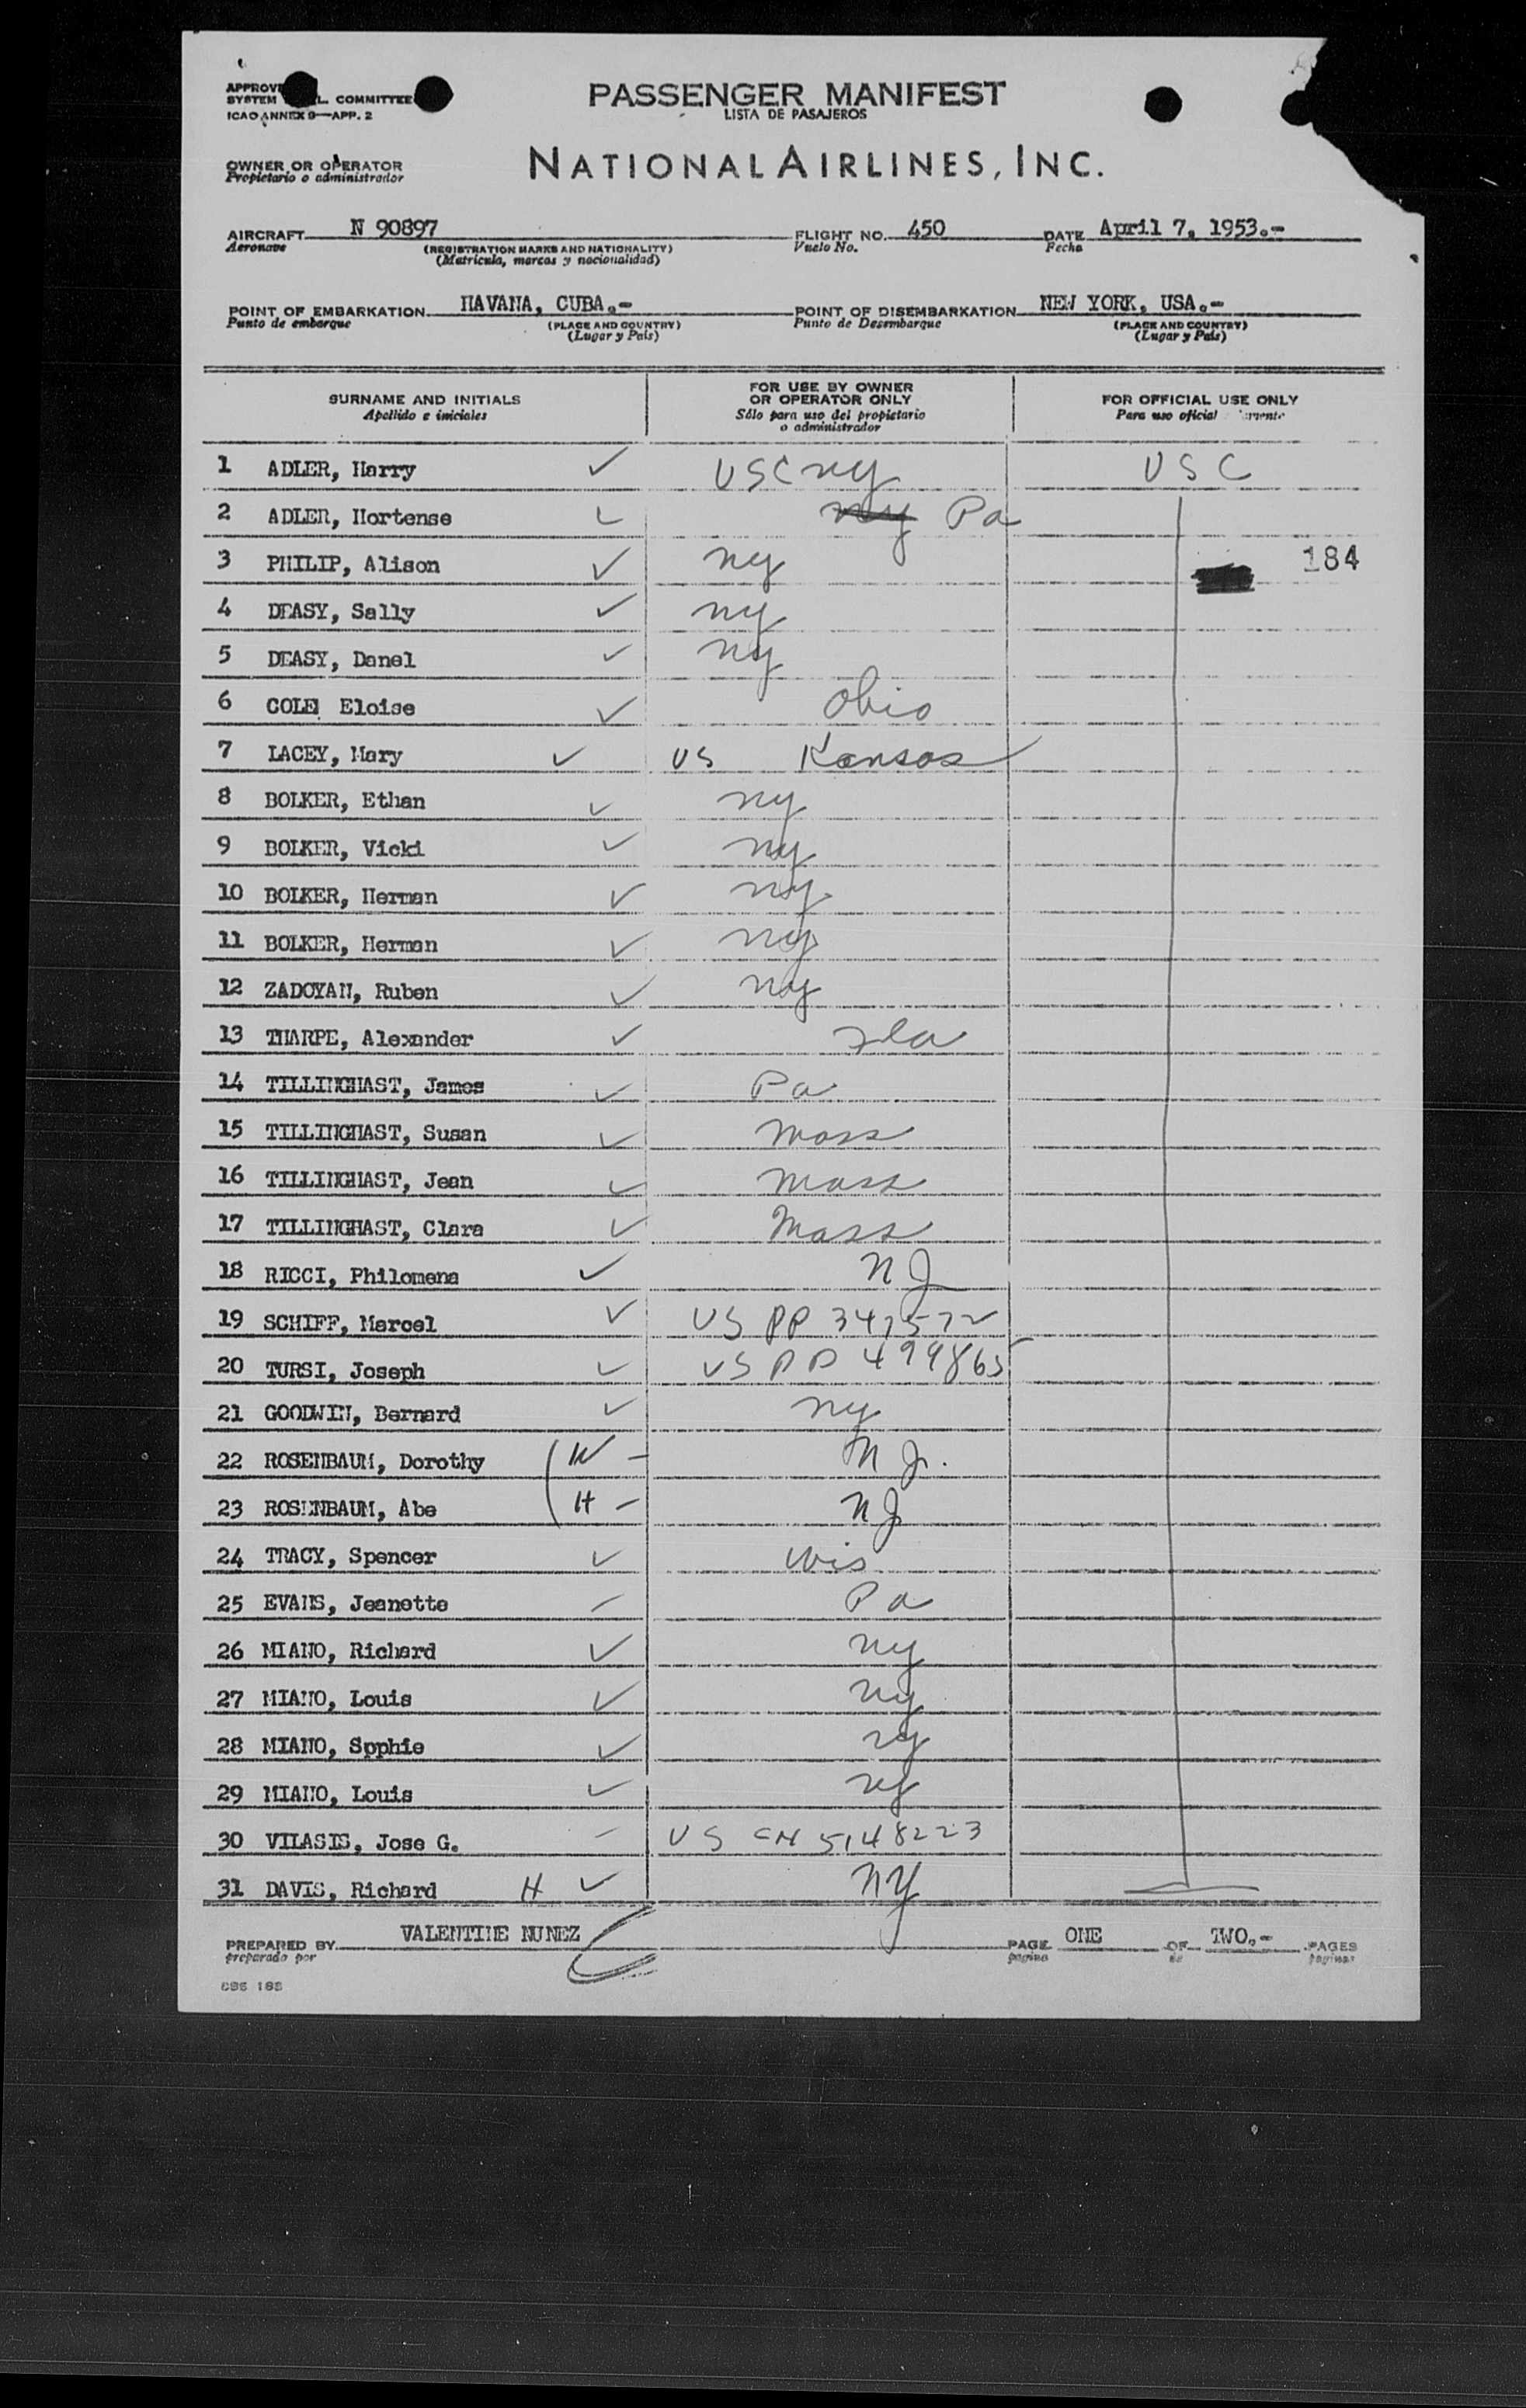 APPROVED
SYSTEM COMMITTEE
ICAO ANNEX 9—APP. 2
PASSENGER MANIFEST
LISTA DE PASAJEROS
OWNER OR OPERATOR
Propietario o administrador
NATIONAL AIRLINES, INC.
AIRCRAFT N 90897 FLIGHT NO. 450 DATE April 7, 1953.-
Aeronave (REGISTRATION MARKS AND NATIONALITY) Vuelo No. Fecha
(Matrícula, marcas y nacionalidad)
POINT OF EMBARKATION HAVANA, CUBA.- POINT OF DISEMBARKATION NEW YORK, USA.-
Punto de embarque (PLACE AND COUNTRY) Punto de Desembarque (PLACE AND COUNTRY)
(Lugar y País) (Lugar y País)
SURNAME AND INITIALS
Apellido e iniciales
FOR USE BY OWNER
OR OPERATOR ONLY
Sólo para uso del propietario
o administrador
FOR OFFICIAL USE ONLY
Para uso oficial
1 ADLER, Harry ✓ USC NY USC
2 ADLER, Hortense ✓ NY Pa
3 PHILIP, Alison ✓ NY 184
4 DEASY, Sally ✓ NY
5 DEASY, Danel ✓ NY
6 COLE Eloise ✓ Ohio
7 LACEY, Mary ✓ US Kansas
8 BOLKER, Ethan ✓ NY
9 BOLKER, Vicki ✓ NY
10 BOLKER, Herman ✓ NY
11 BOLKER, Herman ✓ NY
12 ZADOYAN, Ruben ✓ NY
13 THARPE, Alexander ✓ Fla
14 TILLINGHAST, James ✓ Pa
15 TILLINGHAST, Susan ✓ Mass
16 TILLINGHAST, Jean ✓ Mass
17 TILLINGHAST, Clara ✓ Mass
18 RICCI, Philomena ✓ NJ
19 SCHIFF, Marcel ✓ US PP
20 TURSI, Joseph ✓ US PP 499865
21 GOODWIN, Bernard ✓ NY
22 ROSENBAUM, Dorothy W - NJ.
23 ROSENBAUM, Abe H - NJ
24 TRACY, Spencer ✓ Wis
25 EVANS, Jeanette - Pa
26 MIANO, Richard ✓ NY
27 MIANO, Louis ✓ NY
28 MIANO, Spphie ✓ NY
29 MIANO, Louis ✓ NY
30 VILASIS, Jose G. - US CN 5148223
31 DAVIS, Richard H ✓ NY
PREPARED BY VALENTINE NUNEZ PAGE ONE OF TWO.- PAGES
preparado por página de páginas